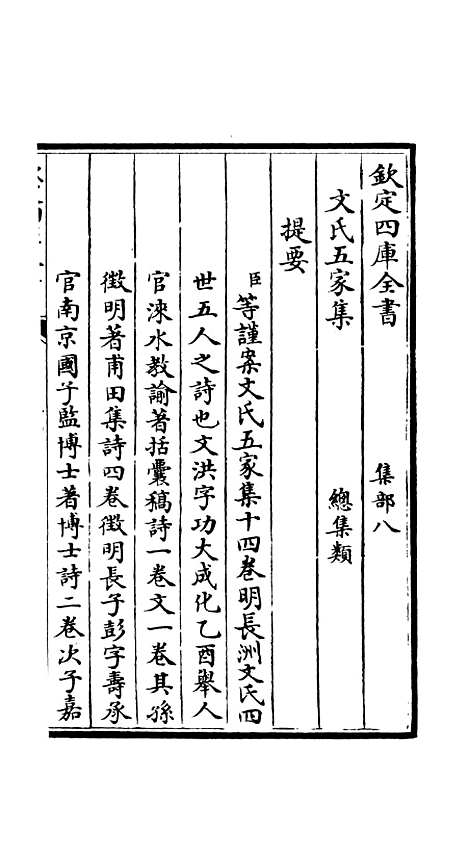 欽定四庫全書　集部八
文氏五家集　總集類
提要
臣等謹案文氏五家集十四卷明長洲文氏四
世五人之詩也文洪字功大成化乙酉舉人
官淶水教諭著括囊稿詩一卷文一卷其孫
徵明著甫田集詩四卷徵明長子彭字壽承
官南京國子監博士著博士詩二卷次子嘉